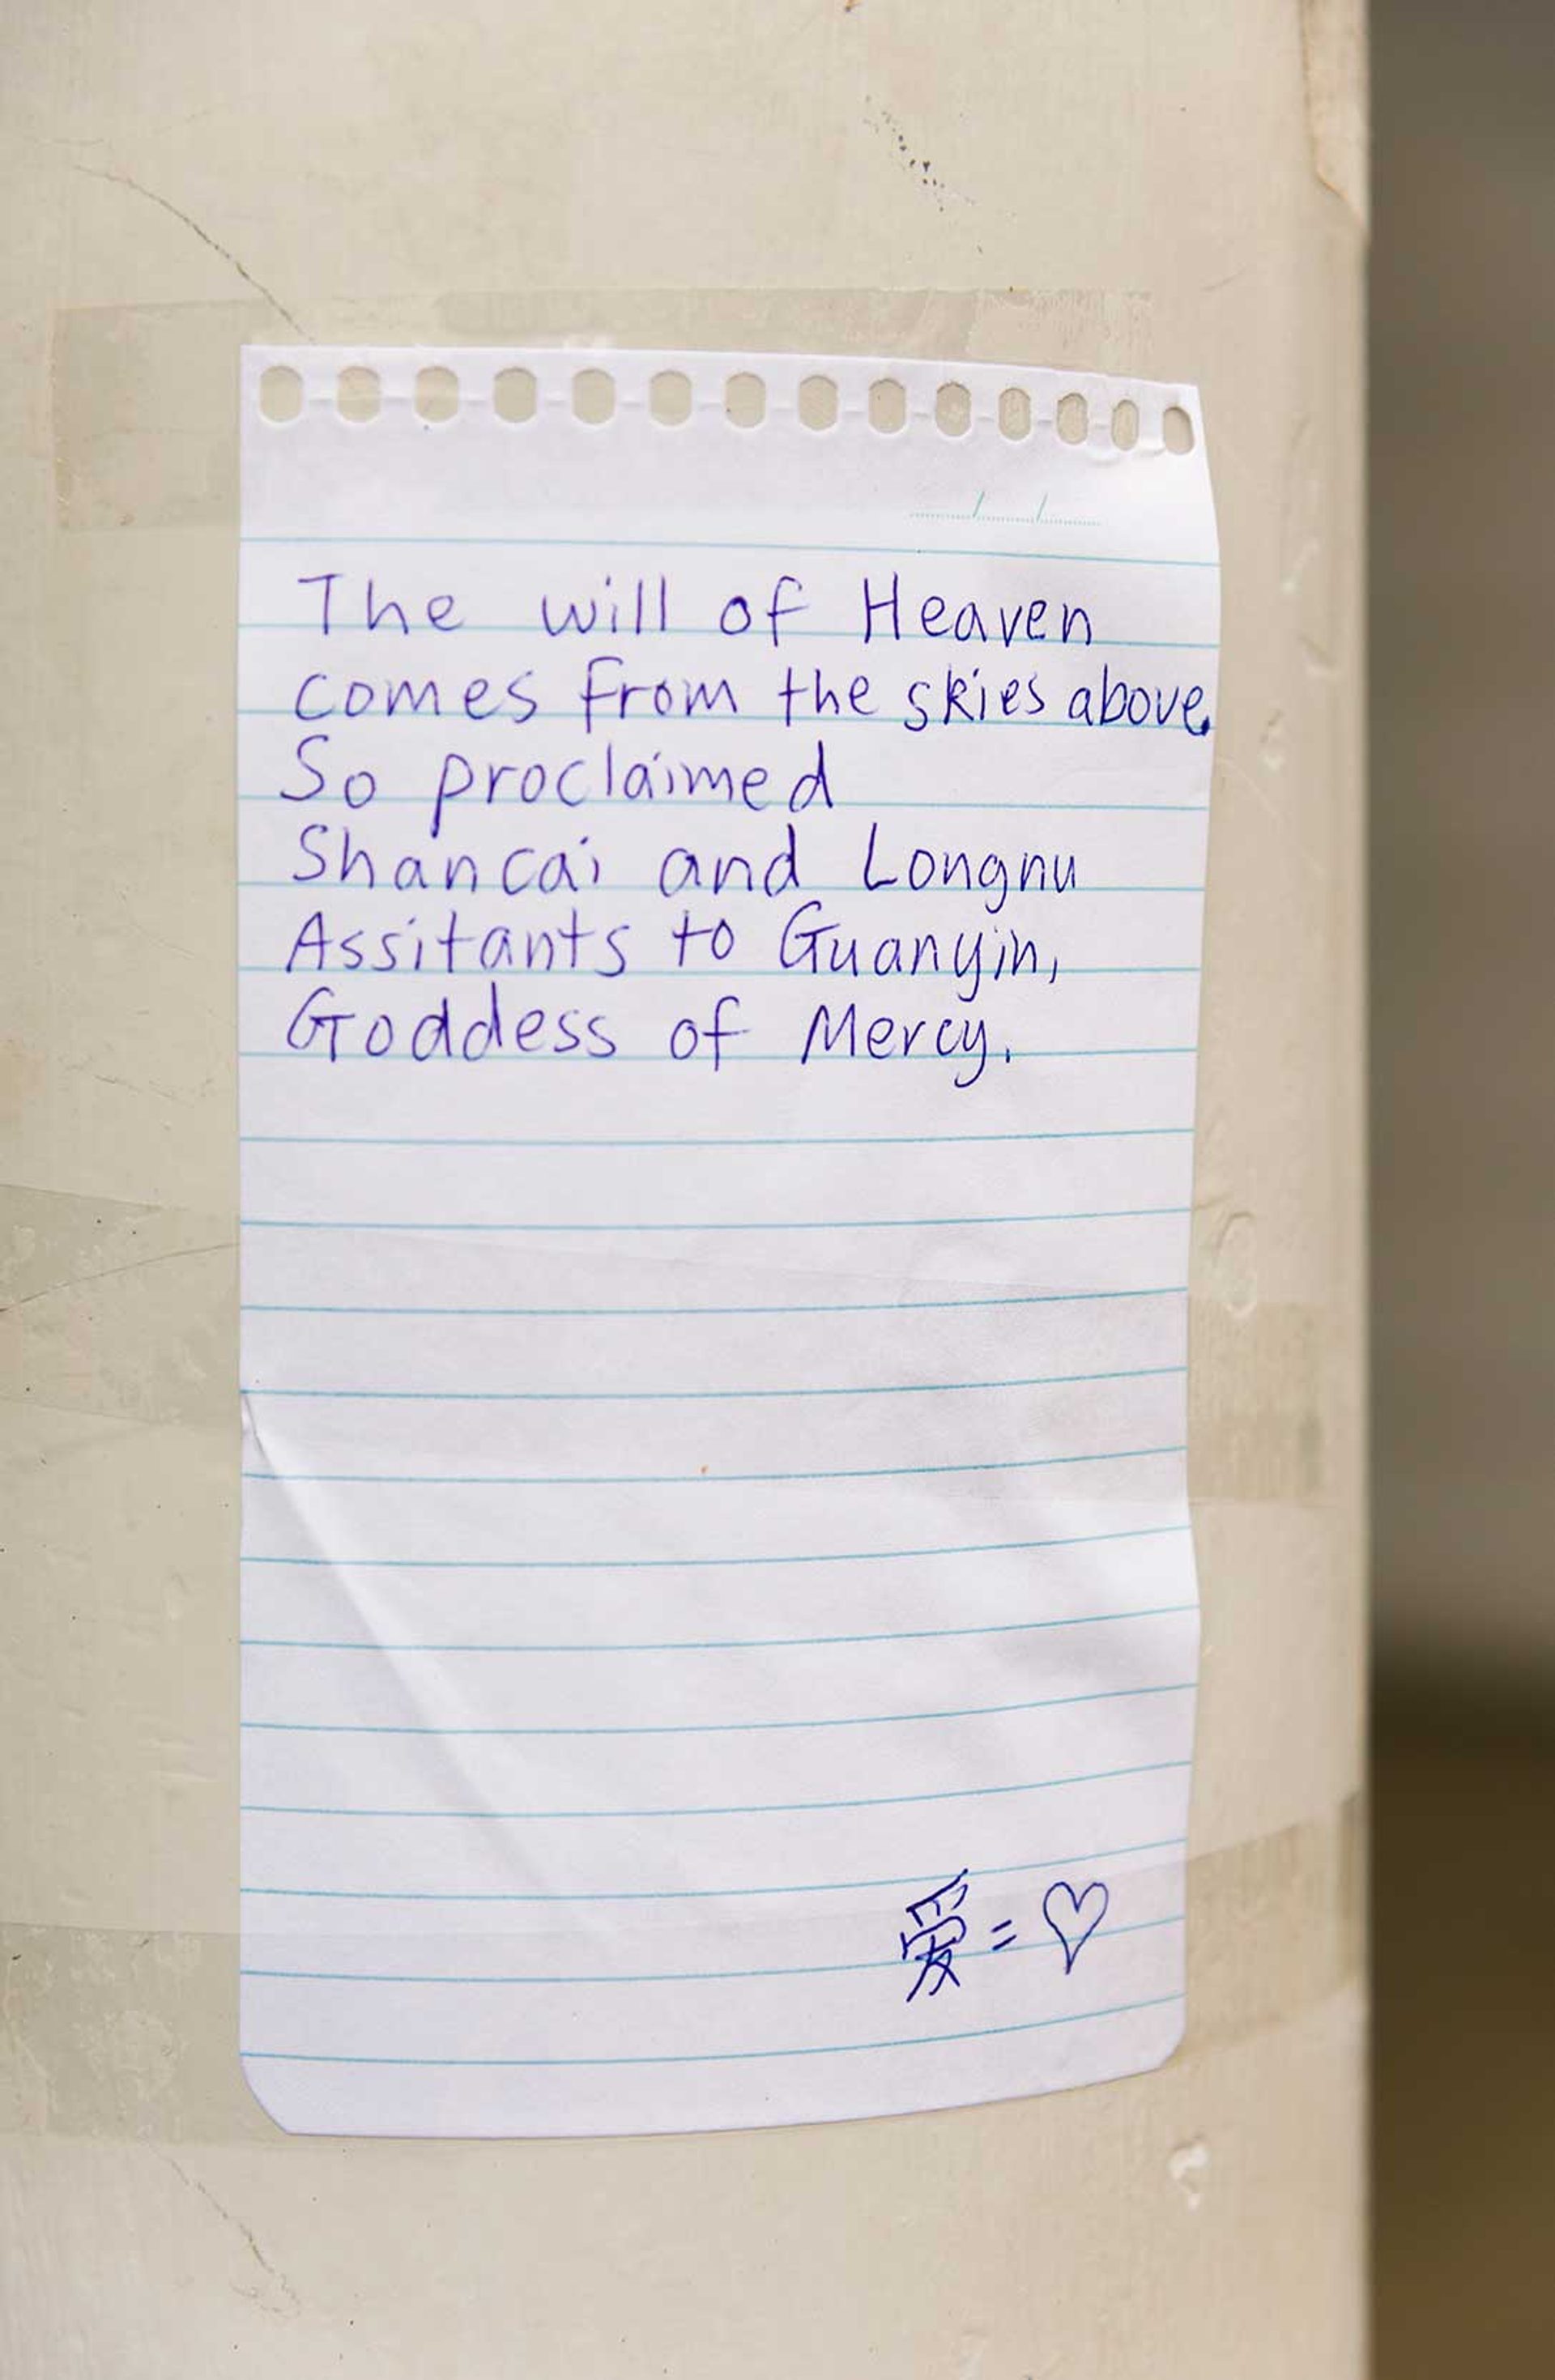 The will of Heaven
comes from the skies above.
So proclaimed
Shancai and Longnu
Assitants to Guanyin,
Goddess of Mercy.
爱=♡